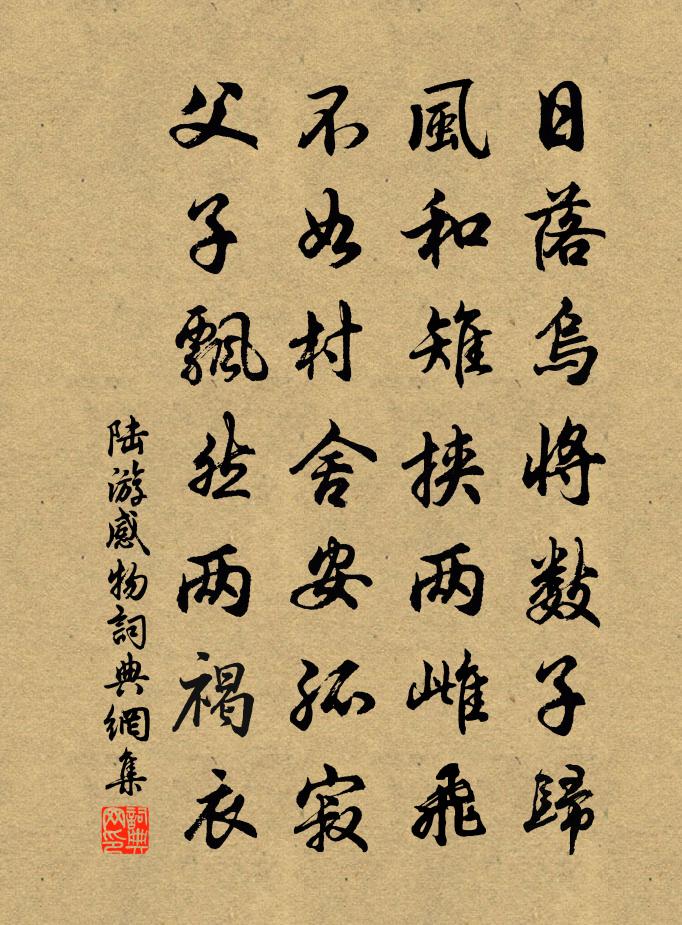 日落烏將數子歸
風和雉挾兩雌飛
不如村舍安孤寂
父子飄然兩褐衣
陆游感物詞典網集
詞典网印